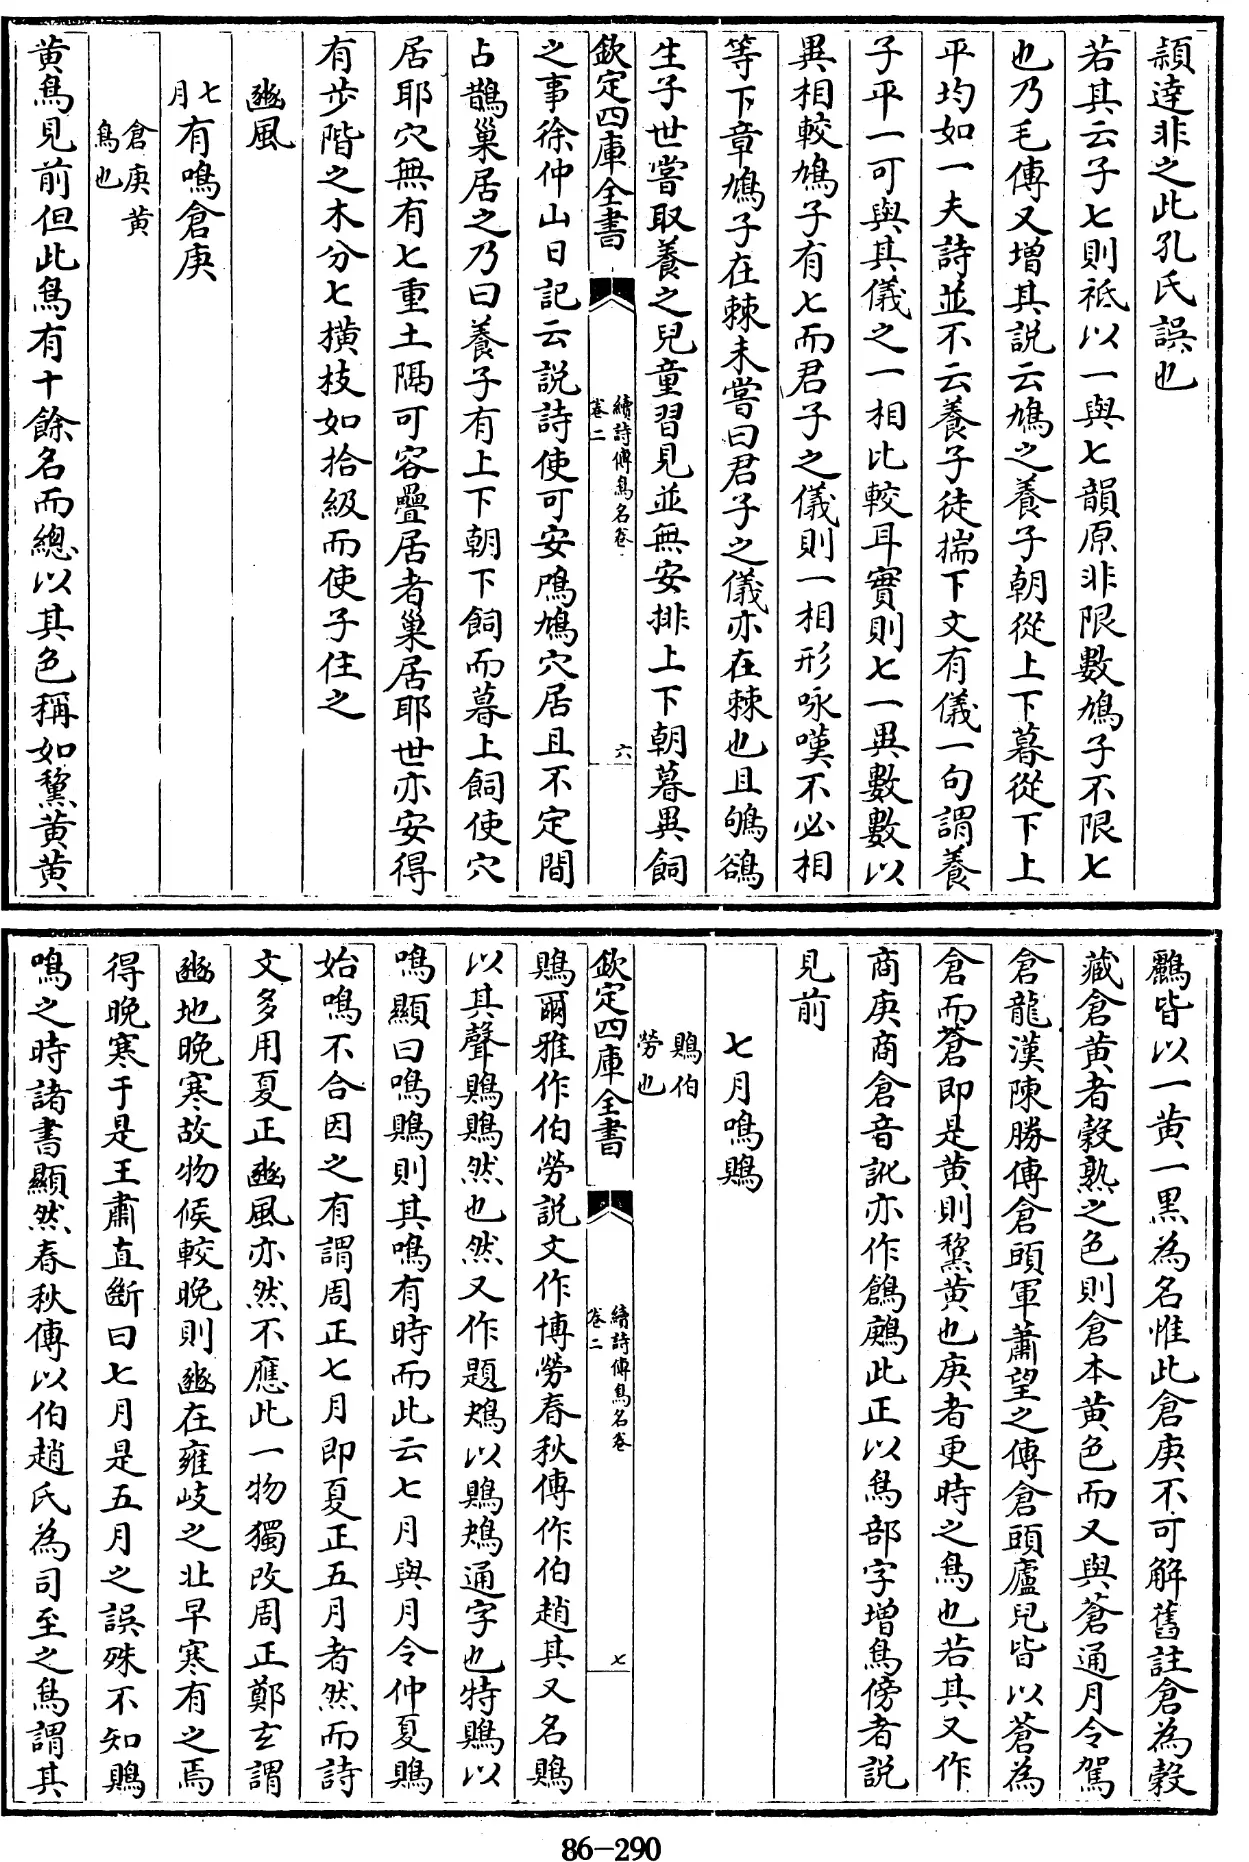 頴逹非之此孔氏誤也
若其云子七則祇以一與七韻原非限數鳩子不限七
也乃毛傳又增其説云鳩之養子朝從上下暮從下上
平均如一夫詩並不云養子徒揣下文有儀一句謂養
子平一可與其儀之一相比較耳實則七一異數數以
異相較鳩子有七而君子之儀則一相形咏嘆不必相
等下章鳩子在棘未嘗曰君子之儀亦在棘也且鳲鵒
生子世嘗取養之兒童習見並無安排上下朝暮異飼
欽定四庫全書
續詩傳鳥名卷
卷二
六
之事徐仲山日記云説詩使可安鳲鳩穴居且不定間
占鵲巢居之乃曰養子有上下朝下飼而暮上飼使穴
居耶穴無有七重土隔可容疊居者巢居耶世亦安得
有步階之木分七橫枝如拾級而使子住之
豳風
七月有鳴倉庚
倉庚黄
鳥也
黄鳥見前但此鳥有十餘名而總以其色稱如鵹黄黄
鸝皆以一黄一黑為名惟此倉庚不可解舊註倉為穀
藏倉黄者穀熟之色則倉本黄色而又與蒼通月令駕
倉龍漢陳勝傳倉頭軍蕭望之傳倉頭廬兒皆以蒼為
倉而蒼即是黄則鵹黄也庚者更時之鳥也若其又作
商庚商倉音訛亦作鶬鶊此正以鳥部字增鳥傍者説
見前
七月鳴鵙
鵙伯
勞也
欽定四庫全書
續詩傳鳥名卷
卷二
七
鵙爾雅作伯勞説文作博勞春秋傳作伯趙其又名鵙
以其聲鵙鵙然也然又作題鴂以鵙鴂通字也特鵙以
鳴顯曰鳴鵙則其鳴有時而此云七月與月令仲夏鵙
始鳴不合因之有謂周正七月即夏正五月者然而詩
文多用夏正豳風亦然不應此一物獨改周正鄭玄謂
豳地晚寒故物候較晩則豳在雍岐之北早寒有之焉
得晚寒于是王肅直斷曰七月是五月之誤殊不知鵙
鳴之時諸書顯然春秋傳以伯趙氏為司至之鳥謂其
86-290